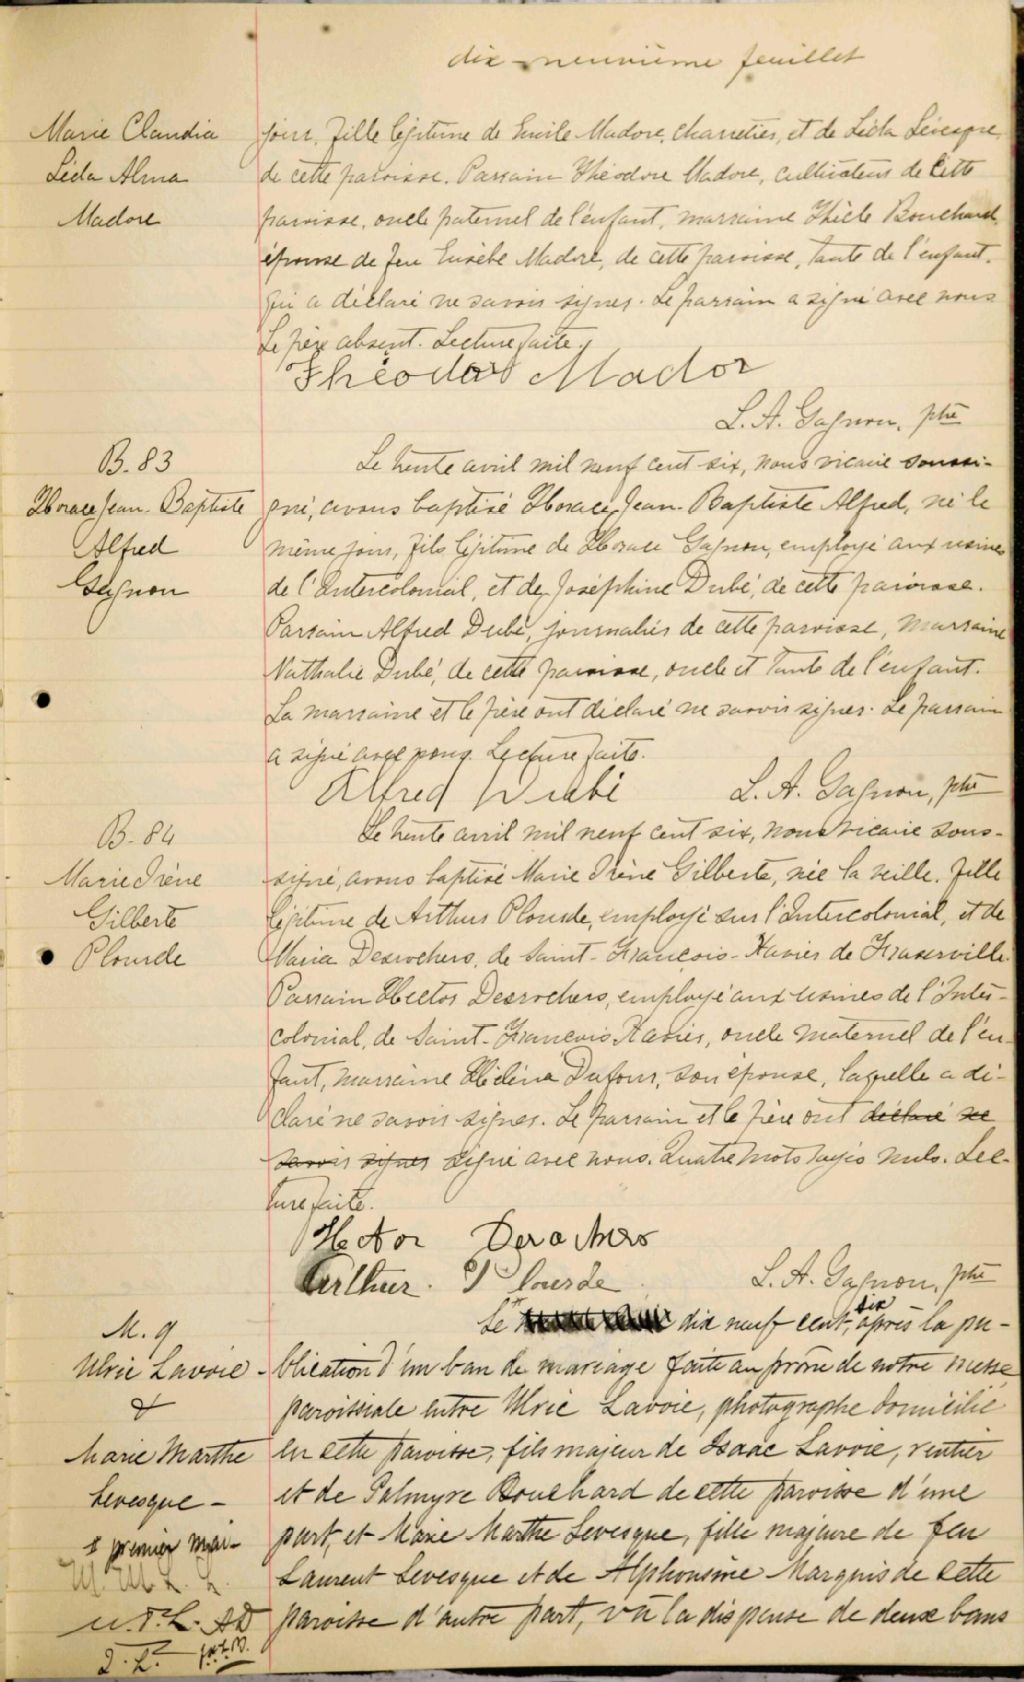 dix-neuvième feuillet
Marie Claudia
Léda Alma
Madore
jour, fille légitime de Emile Madore, charretier, et de Léda Lévesque,
de cette paroisse. Parrain Théodore Madore, cultivateur de cette
paroisse, oncle paternel de l'enfant, marraine Bouchard,
épouse de feu Eusèbe Madore, de cette paroisse, tante de l'enfant.
qui a déclaré ne savoir signer. Le parrain a signé avec nous
Le père absent. Lecture faite.
Théodor Mador
L. A. Gagnon, ptre
B. 83
Horace Jean-Baptiste
Alfred
Gagnon
Le trente avril mil neuf cent six, nous vicaire soussi-
gné, avons baptisé Horace Jean-Baptiste Alfred, né le
même jour, fils légitime de Horace Gagnon, employé aux usines
de l'Intercolonial, et de Joséphine Dubé, de cette paroisse.
Parrain Alfred Dubé, journalier de cette paroisse, marraine
Nathalie Dubé, de cette paroisse, oncle et tante de l'enfant.
La marraine et le père ont déclaré ne savoir signer. Le parrain
a signé avec nous. Lecture faite.
Alfred Dubé
L. A. Gagnon, ptre
B. 84
Marie Irène
Gilberte
Plourde
Le trente avril mil neuf cent six, nous vicaire sous-
signé, avons baptisé Marie Irène Gilberte, née la veille, fille
légitime de Arthur Plourde, employé sur l'Intercolonial, et de
Maria Desrochers, de Saint-François-Xavier de Fraserville.
Parrain Hector Desrochers, employé aux usines de l'Inter-
colonial, de Saint-François Xavier, oncle maternel de l'en-
fant, marraine Hélène Dufour, son épouse, laquelle a dé-
claré ne savoir signer. Le parrain et le père ont déclaré ne
savoir signer signé avec nous. Quatre mots rayés nuls. Lec-
ture faite.
Hector Derochers
Arthur. Plourde
L. A. Gagnon, ptre
M. 9
Ulric Lavoie -
&
Marie Marthe
Levesque -
premier mai -
Le dix neuf cent, six après la pu-
blication d'un ban de mariage faite au prône de notre messe
paroissiale entre Ulric Lavoie, photographe domicilié
en cette paroisse, fils majeur de Isaac Lavoie, rentier
et de Palmyre Bouchard de cette paroisse d'une
part, et Marie Marthe Levesque, fille majeure de feu
Laurent Levesque et de Alphonsine Marquis de cette
paroisse d'autre part, vu la dispense de deux bans